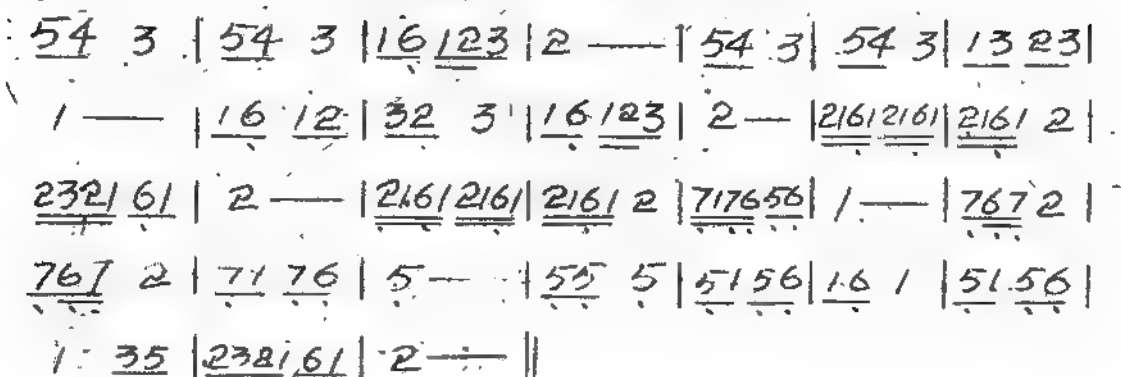 54 3 | 54 3 | 16 123 | 2 — | 54 3 | 54 3 | 13 23 |
1 — | 16 12 | 32 3 | 16 123 | 2 — | 2161 2161 | 2161 2 |
2321 61 | 2 — | 2161 2161 | 2161 2 | 7176 56 | 1 — | 767 2 |
767 2 | 71 76 | 5 — | 55 5 | 51 56 | 16 1 | 51 56 |
1 35 | 2321 61 | 2 — ‖